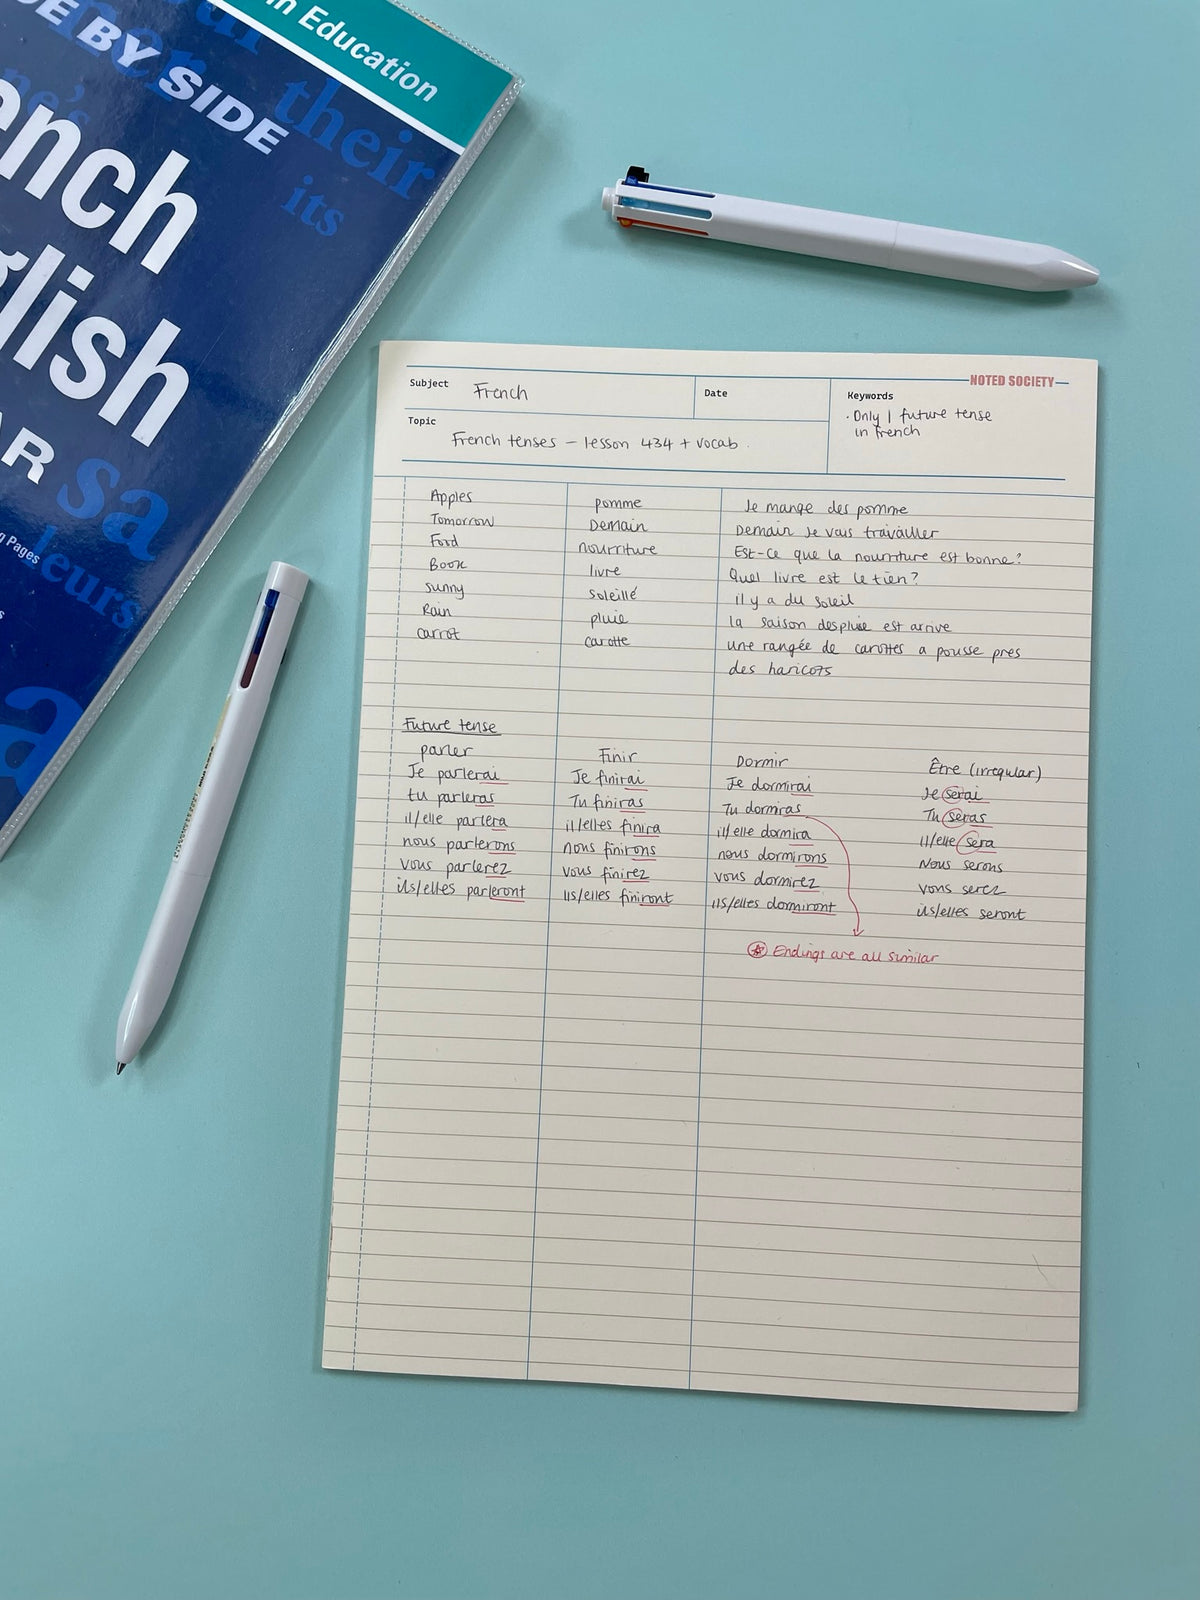 in Education
DE BY SIDE
their
its
ench
glish
AR
sa
g Pages
leurs
a
NOTED SOCIETY
Subject French
Date
Keywords
· Only 1 future tense
in french
Topic
French tenses – lesson 434 + vocab.
Apples pomme Je mange des pomme
Tomorrow Demain Demain Je vais travailler
Food nourriture Est-ce que la nourriture est bonne?
Book livre Quel livre est le tien?
sunny soleillé il y a du soleil
Rain pluie la saison des pluie est arrive
carrot carotte une rangée de carottes a pousse pres
des haricots
Future tense
parler Finir Dormir Être (irregular)
Je parlerai Je finirai Je dormirai Je serai
tu parleras Tu finiras Tu dormiras Tu seras
il/elle parlera il/elles finira il/elle dormira il/elle sera
nous parlerons nous finirons nous dormirons Nous serons
vous parlerez vous finirez vous dormirez vous serez
ils/elles parleront ils/elles finiront ils/elles dormiront ils/elles seront
Endings are all similar